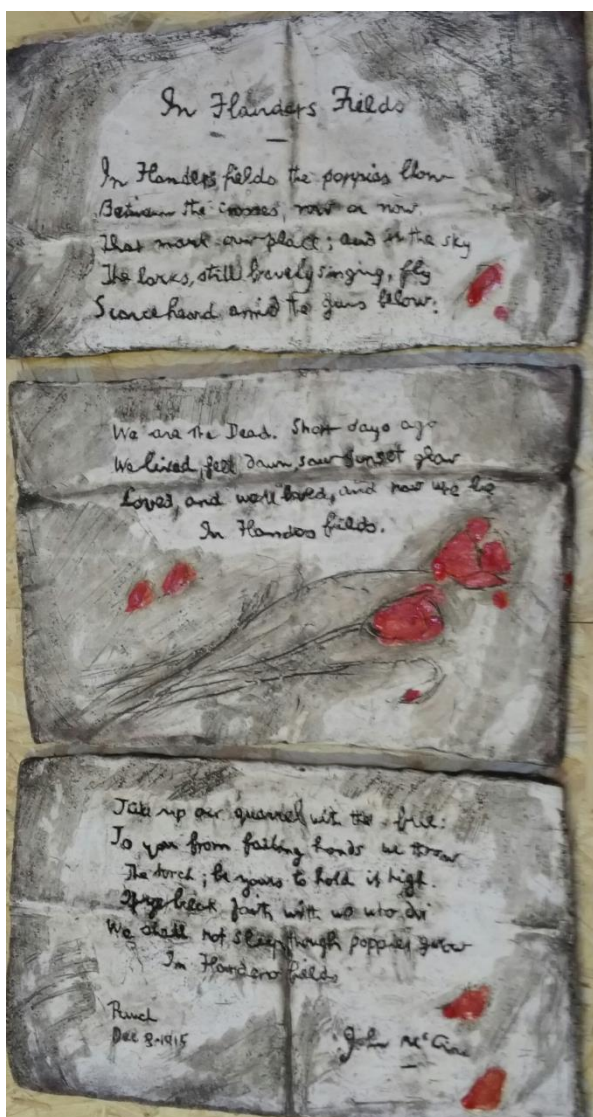 In Flanders Fields
In Flanders fields the poppies blow
Between the crosses, row on row,
That mark our place; and in the sky
The larks, still bravely singing, fly
Scarce heard amid the guns below.
We are the Dead. Short days ago
We lived, felt dawn, saw sunset glow
Loved, and were loved, and now we lie
In Flanders fields.
Take up our quarrel with the foe:
To you from failing hands we throw
The torch; be yours to hold it high.
If ye break faith with us who die
We shall not sleep, though poppies grow
In Flanders fields
Punch
Dec 8-1915
John McCrae